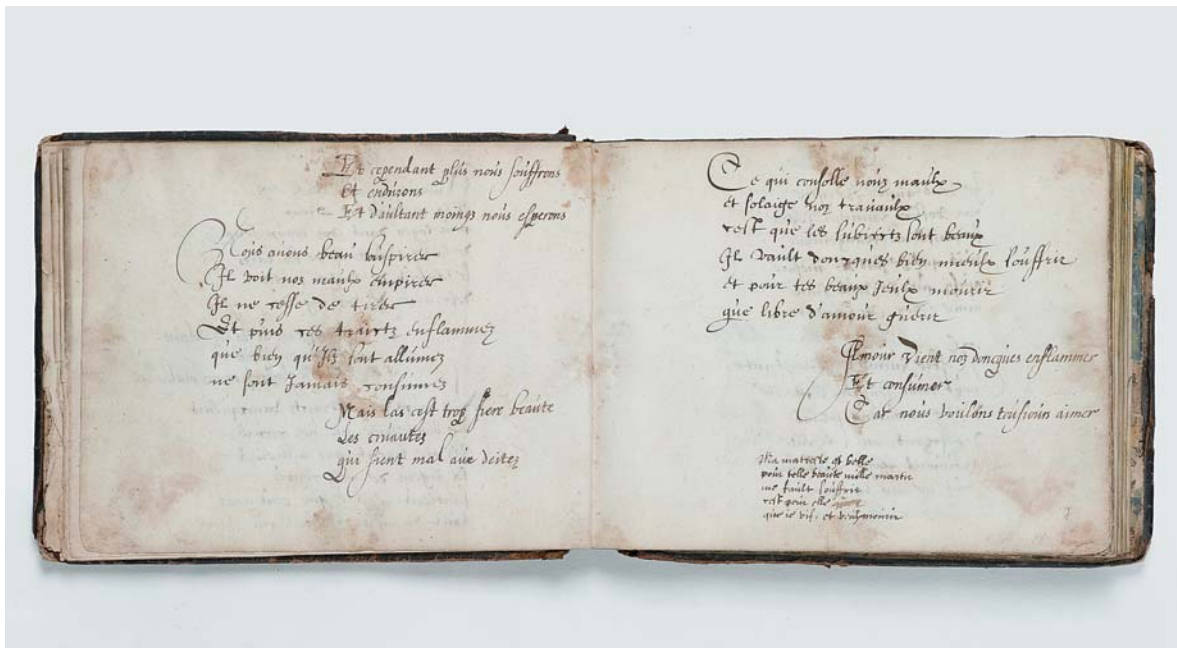 Et cependant plus nous souffrons
Et endurons
Et d'aultant moings nous esperons
Nous auons beau souspirer
Il voit nos maulx empirer
Il ne cesse de tirer
Et puis ces traictz enflammez
que bien qu'Ilz sont allumez
ne sont Jamais consumez
Mais las cest trop fiere beaute
Les cruautez
qui sient mal aux deitez
Ce qui consolle nouz maulx
et solaige noz trauaulx
cest que les subiectz sont beaux
Il vault doncques bien mieulx souffrir
et pour tes beaux Jeulx mourir
que libre d'amour guerir
Amour vient noz doncques enflammer
Et consumer
Car nous voulons tousiours aimer
Ma matresse et belle
pour telle beaute mille martir
me fault souffrir
cest pour elle
que ie vis. et veulx mourir